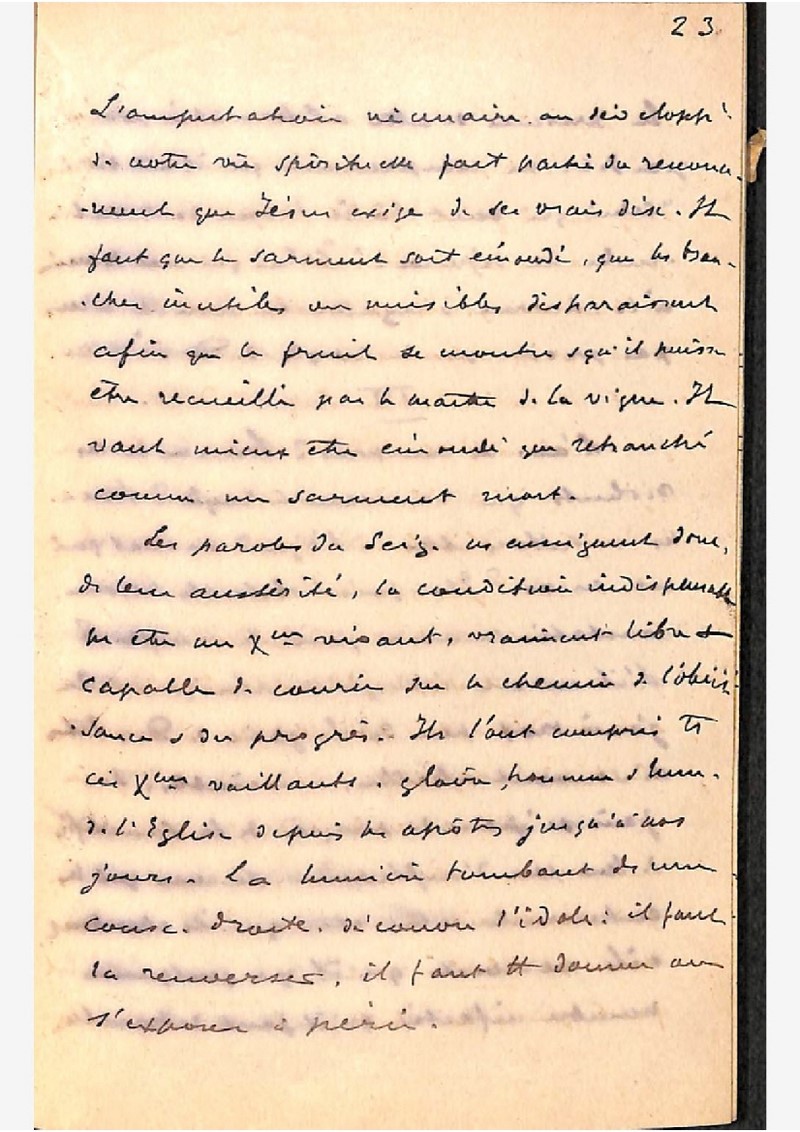 23
L'amputation nécessaire au développt
de notre vie spirituelle fait partie du renonce-
-ment que Jésus exige de ses vrais disc. Il
faut que le sarment soit émondé, que les bran-
-ches inutiles ou nuisibles disparaissent
afin que le fruit se montre & qu'il puisse
être recueilli par le maître de la vigne. Il
vaut mieux être émondé que retranché
comme un sarment mort.
Les paroles du Seig. ns enseignent donc,
ds leur austérité, la condition indispensable
pr être un Xen vivant, vraiment libre &
capable de courir sur le chemin de l'obéis-
sance & du progrès. Ils l'ont compris ts
ces Xens vaillants, gloire, honneur & lum.
de l'Eglise depuis les apôtres jusqu'à nos
jours. La lumière tombant ds une
consc. droite, découvre l'idole: il faut
la renverser, il faut tt donner ou
s'exposer à périr.